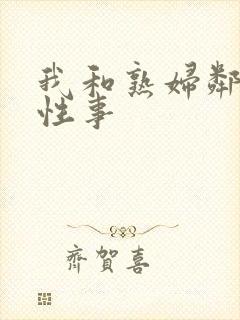 我和熟婦鄰
性事
齊賀喜